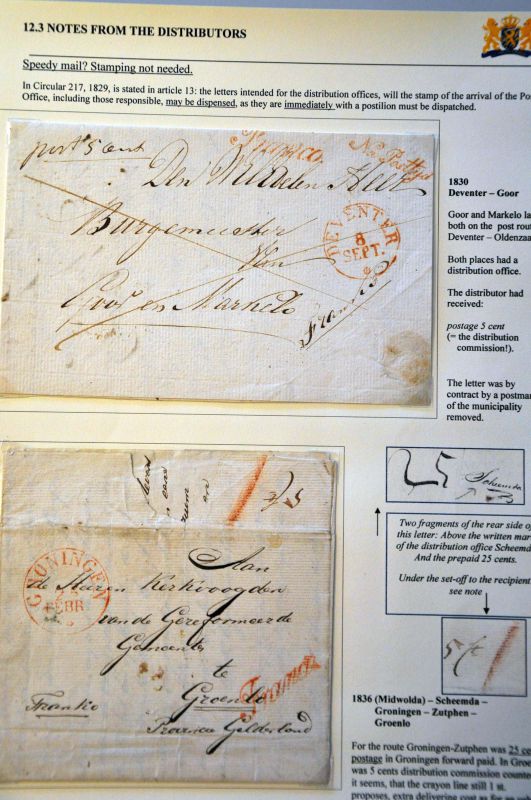 12.3 NOTES FROM THE DISTRIBUTORS
Speedy mail? Stamping not needed.
In Circular 217, 1829, is stated in article 13: the letters intended for the distribution offices, will the stamp of the arrival of the Po
Office, including those responsible, may be dispensed, as they are immediately with a postilion must be dispatched.
port 5 cent
Franco.
Na Posttyd
Den
Burgemeester
Van
Goor en Markelo
Franco
DEVENTER
8
SEPT.
1830
Deventer – Goor
Goor and Markelo la
both on the post rou
Deventer – Oldenzaa
Both places had a
distribution office.
The distributor had
received:
postage 5 cent
(= the distribution
commission!).
The letter was by
contract by a postma
of the municipality
removed.
25
Scheemda
Two fragments of the rear side o
this letter: Above the written mar
of the distribution office Scheemd
And the prepaid 25 cents.
Under the set-off to the recipient
see note
GRONINGEN
FEBR
Aan
de Heeren Kerkvoogden
van de Gereformeerde
Gemeente
te
Groenlo
Provincie Gelderland
Franko
Franco
1836 (Midwolda) – Scheemda –
Groningen – Zutphen –
Groenlo
For the route Groningen-Zutphen was 25 ce
postage in Groningen forward paid. In Groe
was 5 cents distribution commission counte
it seems, that the crayon line still 1 st.
proposes, extra delivering cost as for an